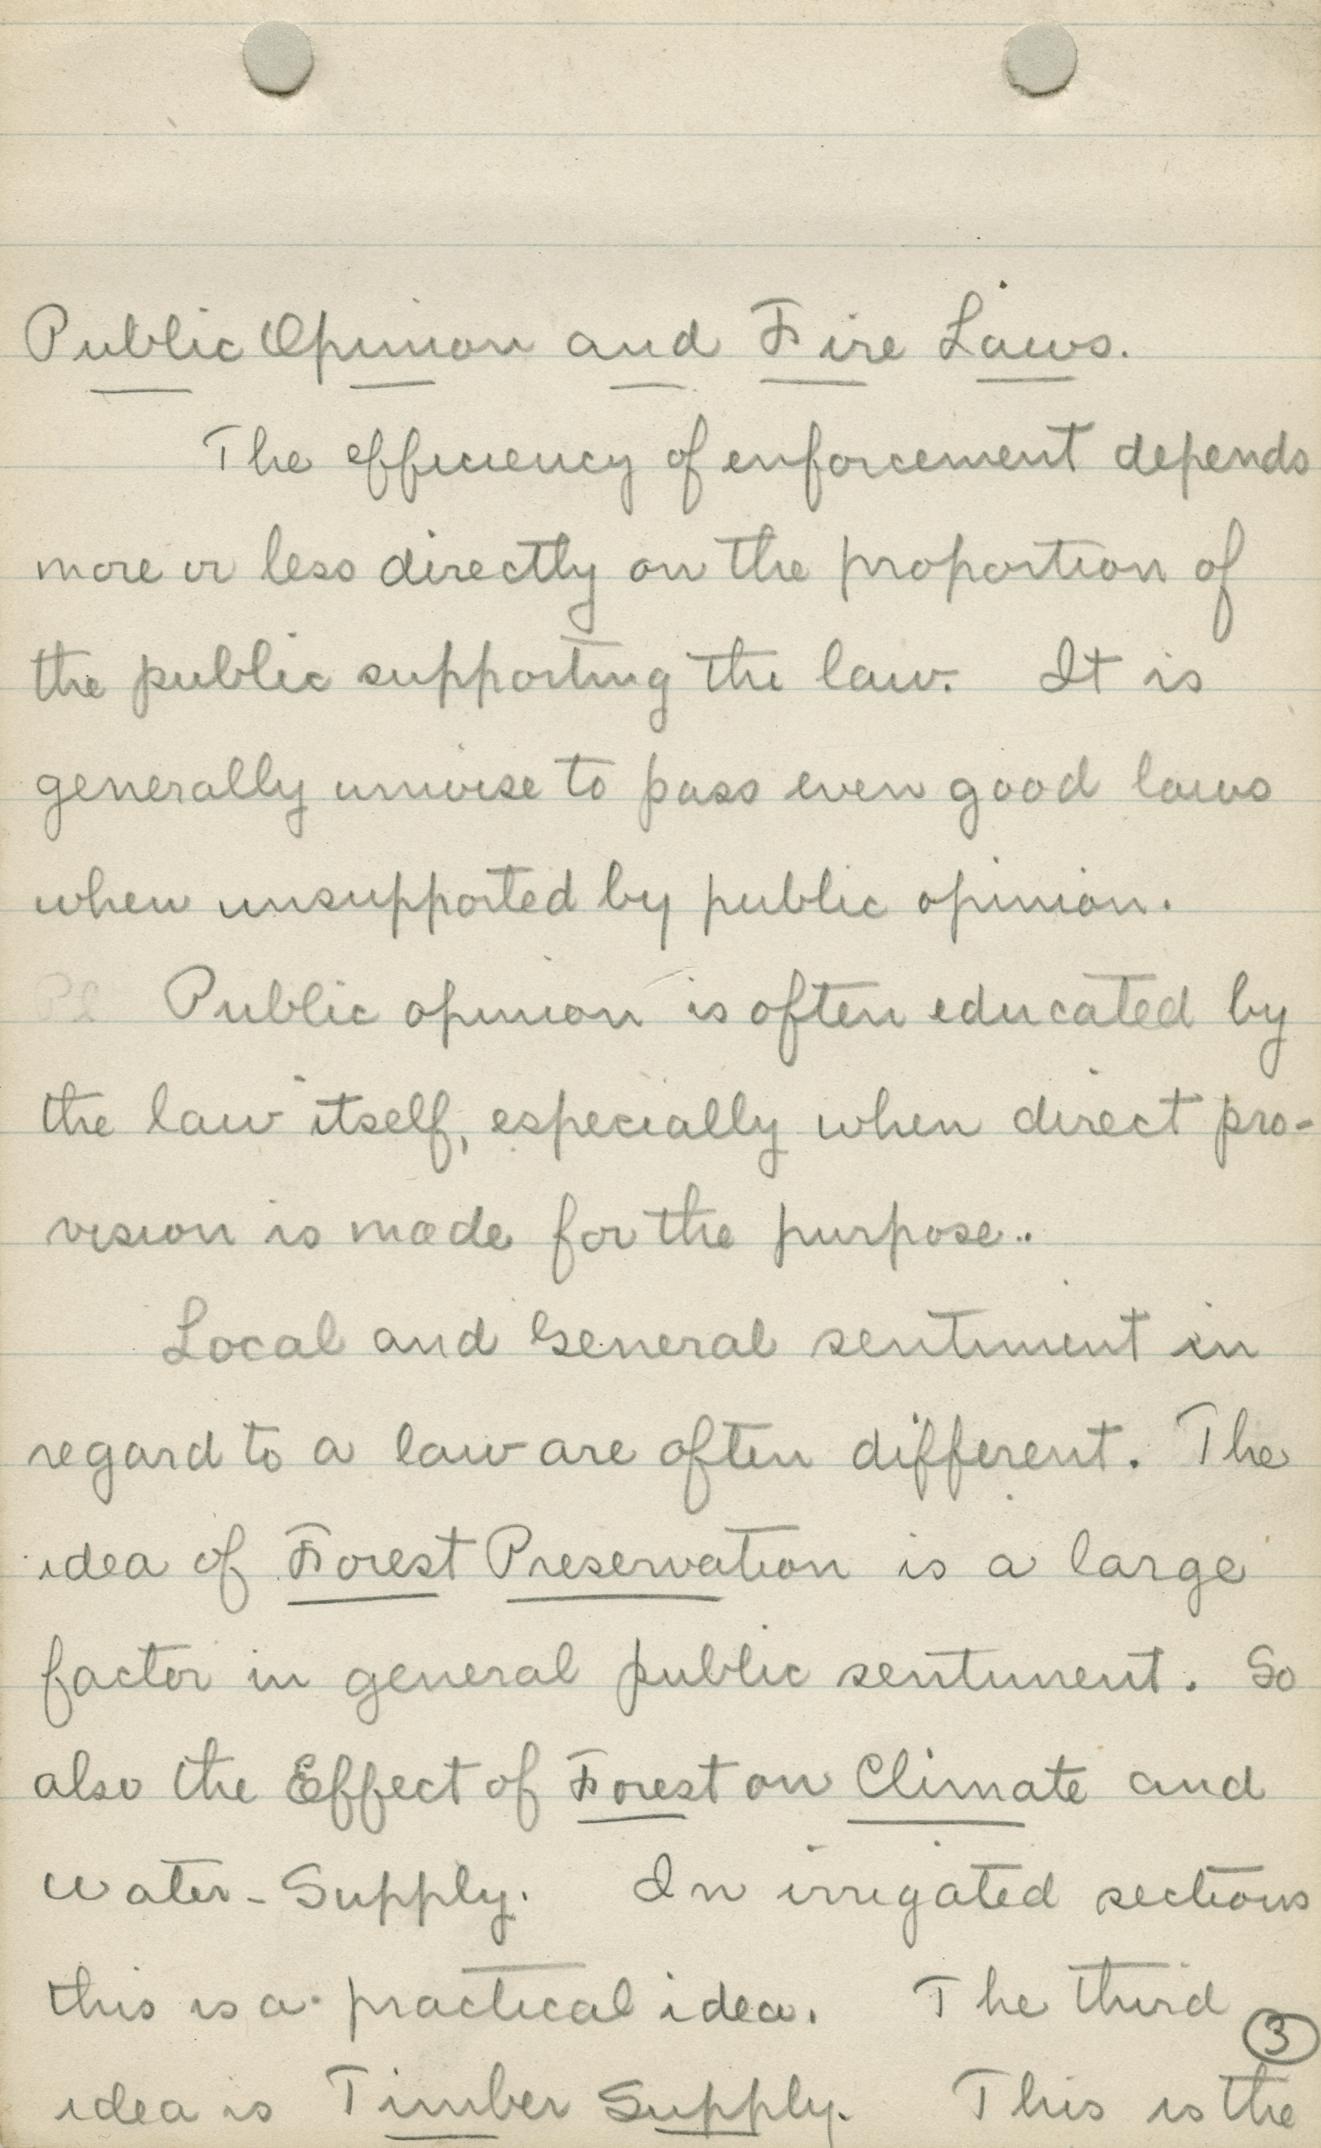 Public Opinion and Fire Laws.
The efficiency of enforcement depends
more or less directly on the proportion of
the public supporting the law. It is
generally unwise to pass even good laws
when unsupported by public opinion.
Public opinion is often educated by
the law itself, especially when direct pro-
vision is made for the purpose..
Local and General sentiment in
regard to a law are often different. The
idea of Forest Preservation is a large
factor in general public sentiment. So
also the Effect of Forest on Climate and
Water-Supply. In irrigated sections
this is a practical idea. The third
3
idea is Timber Supply. This is the